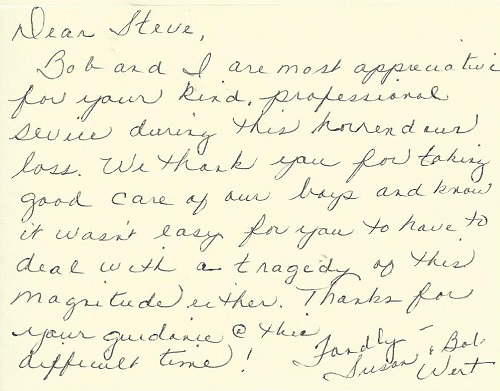 Dear Steve,
Bob and I are most appreciative
for your kind, professional
sevice during this horrendous
loss. We thank you for taking
good care of our boys and know
it wasn't easy for you to have to
deal with a tragedy of this
magnitude either. Thanks for
your guidance @ this
difficult time!
Fondly –
Susan & Bob
Wert